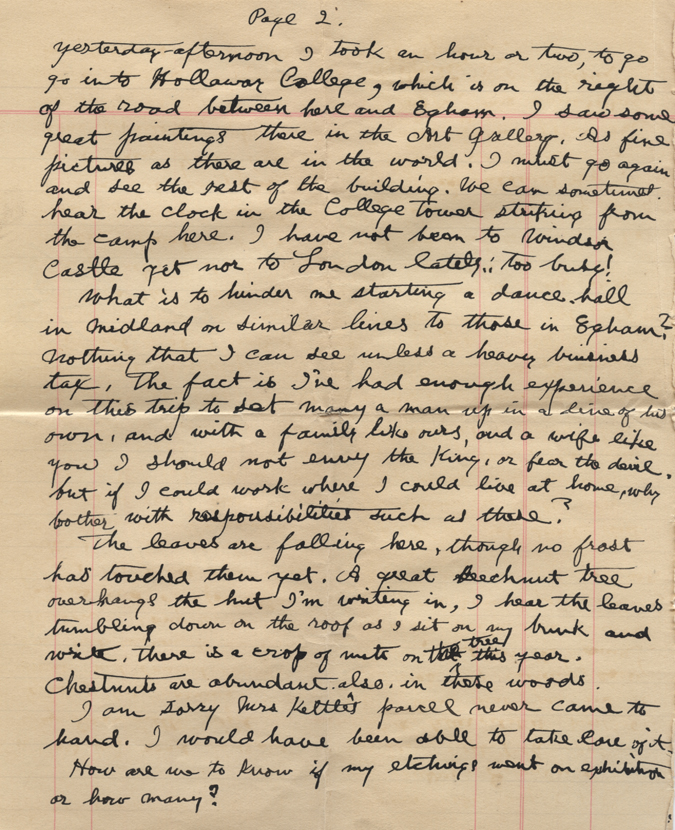 Page 2.
yesterday afternoon I took an hour or two, to go
go into Hollaway College, which is on the right
of the road between here and Egham. I saw some
great paintings there in the Art Gallery. As fine
pictures as there are in the world. I must go again
and see the rest of the building. We can sometimes
hear the clock in the College Tower striking from
the camp here. I have not been to Windsor
Castle yet nor to London lately; too busy!
What is to hinder me starting a dance hall
in Midland on similar lines to those in Egham?
Nothing that I can see unless a heavy business
tax. The fact is I've had enough experience
on this trip to set many a man up in a line of his
own, and with a family like ours, and a wife like
you I should not envy the King, or fear the devil.
but if I could work where I could live at home, why
bother with responsibilities such as these?
The leaves are falling here, though no frost
has touched them yet. A great beechnut tree
overhangs the hut I'm writing in, I hear the leaves
tumbling down on the roof as I sit on my bunk and
write. there is a crop of nuts on the tree this year.
Chestnuts are abundant also in these woods.
I am sorry Mrs Kettle's parcel never came to
hand. I would have been able to take care of it.
How are we to know if my etchings went on exhibition
or how many?